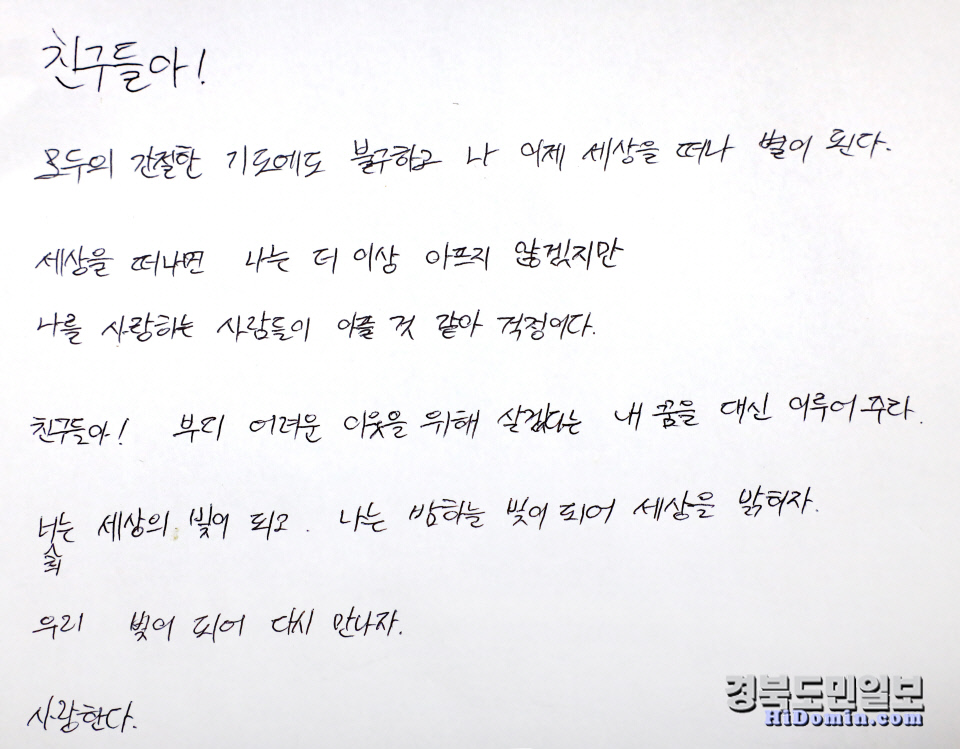 친구들아!
모두의 간절한 기도에도 불구하고 나 이제 세상을 떠나 별이 된다.
세상을 떠나면 나는 더 이상 아프지 않겠지만
나를 사랑하는 사람들이 아플 것 같아 걱정이다.
친구들아! 부디 어려운 이웃을 위해 살겠다는 내 꿈을 대신 이루어 주라.
너희는 세상의 빛이 되고. 나는 밤하늘 빛이 되어 세상을 밝히자.
우리 빛이 되어 다시 만나자.
사랑한다.
경북도민일보
HiDomin.com